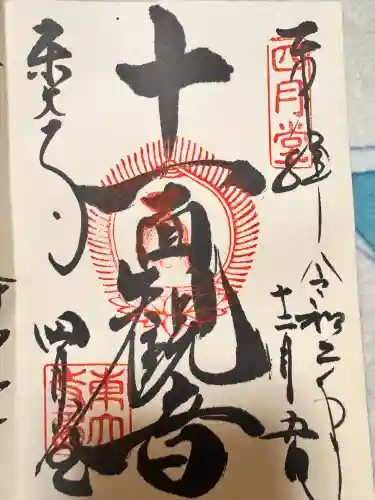 奉拝
四月堂
令和三年
十二月五日
十一面観音
東大寺
四月堂